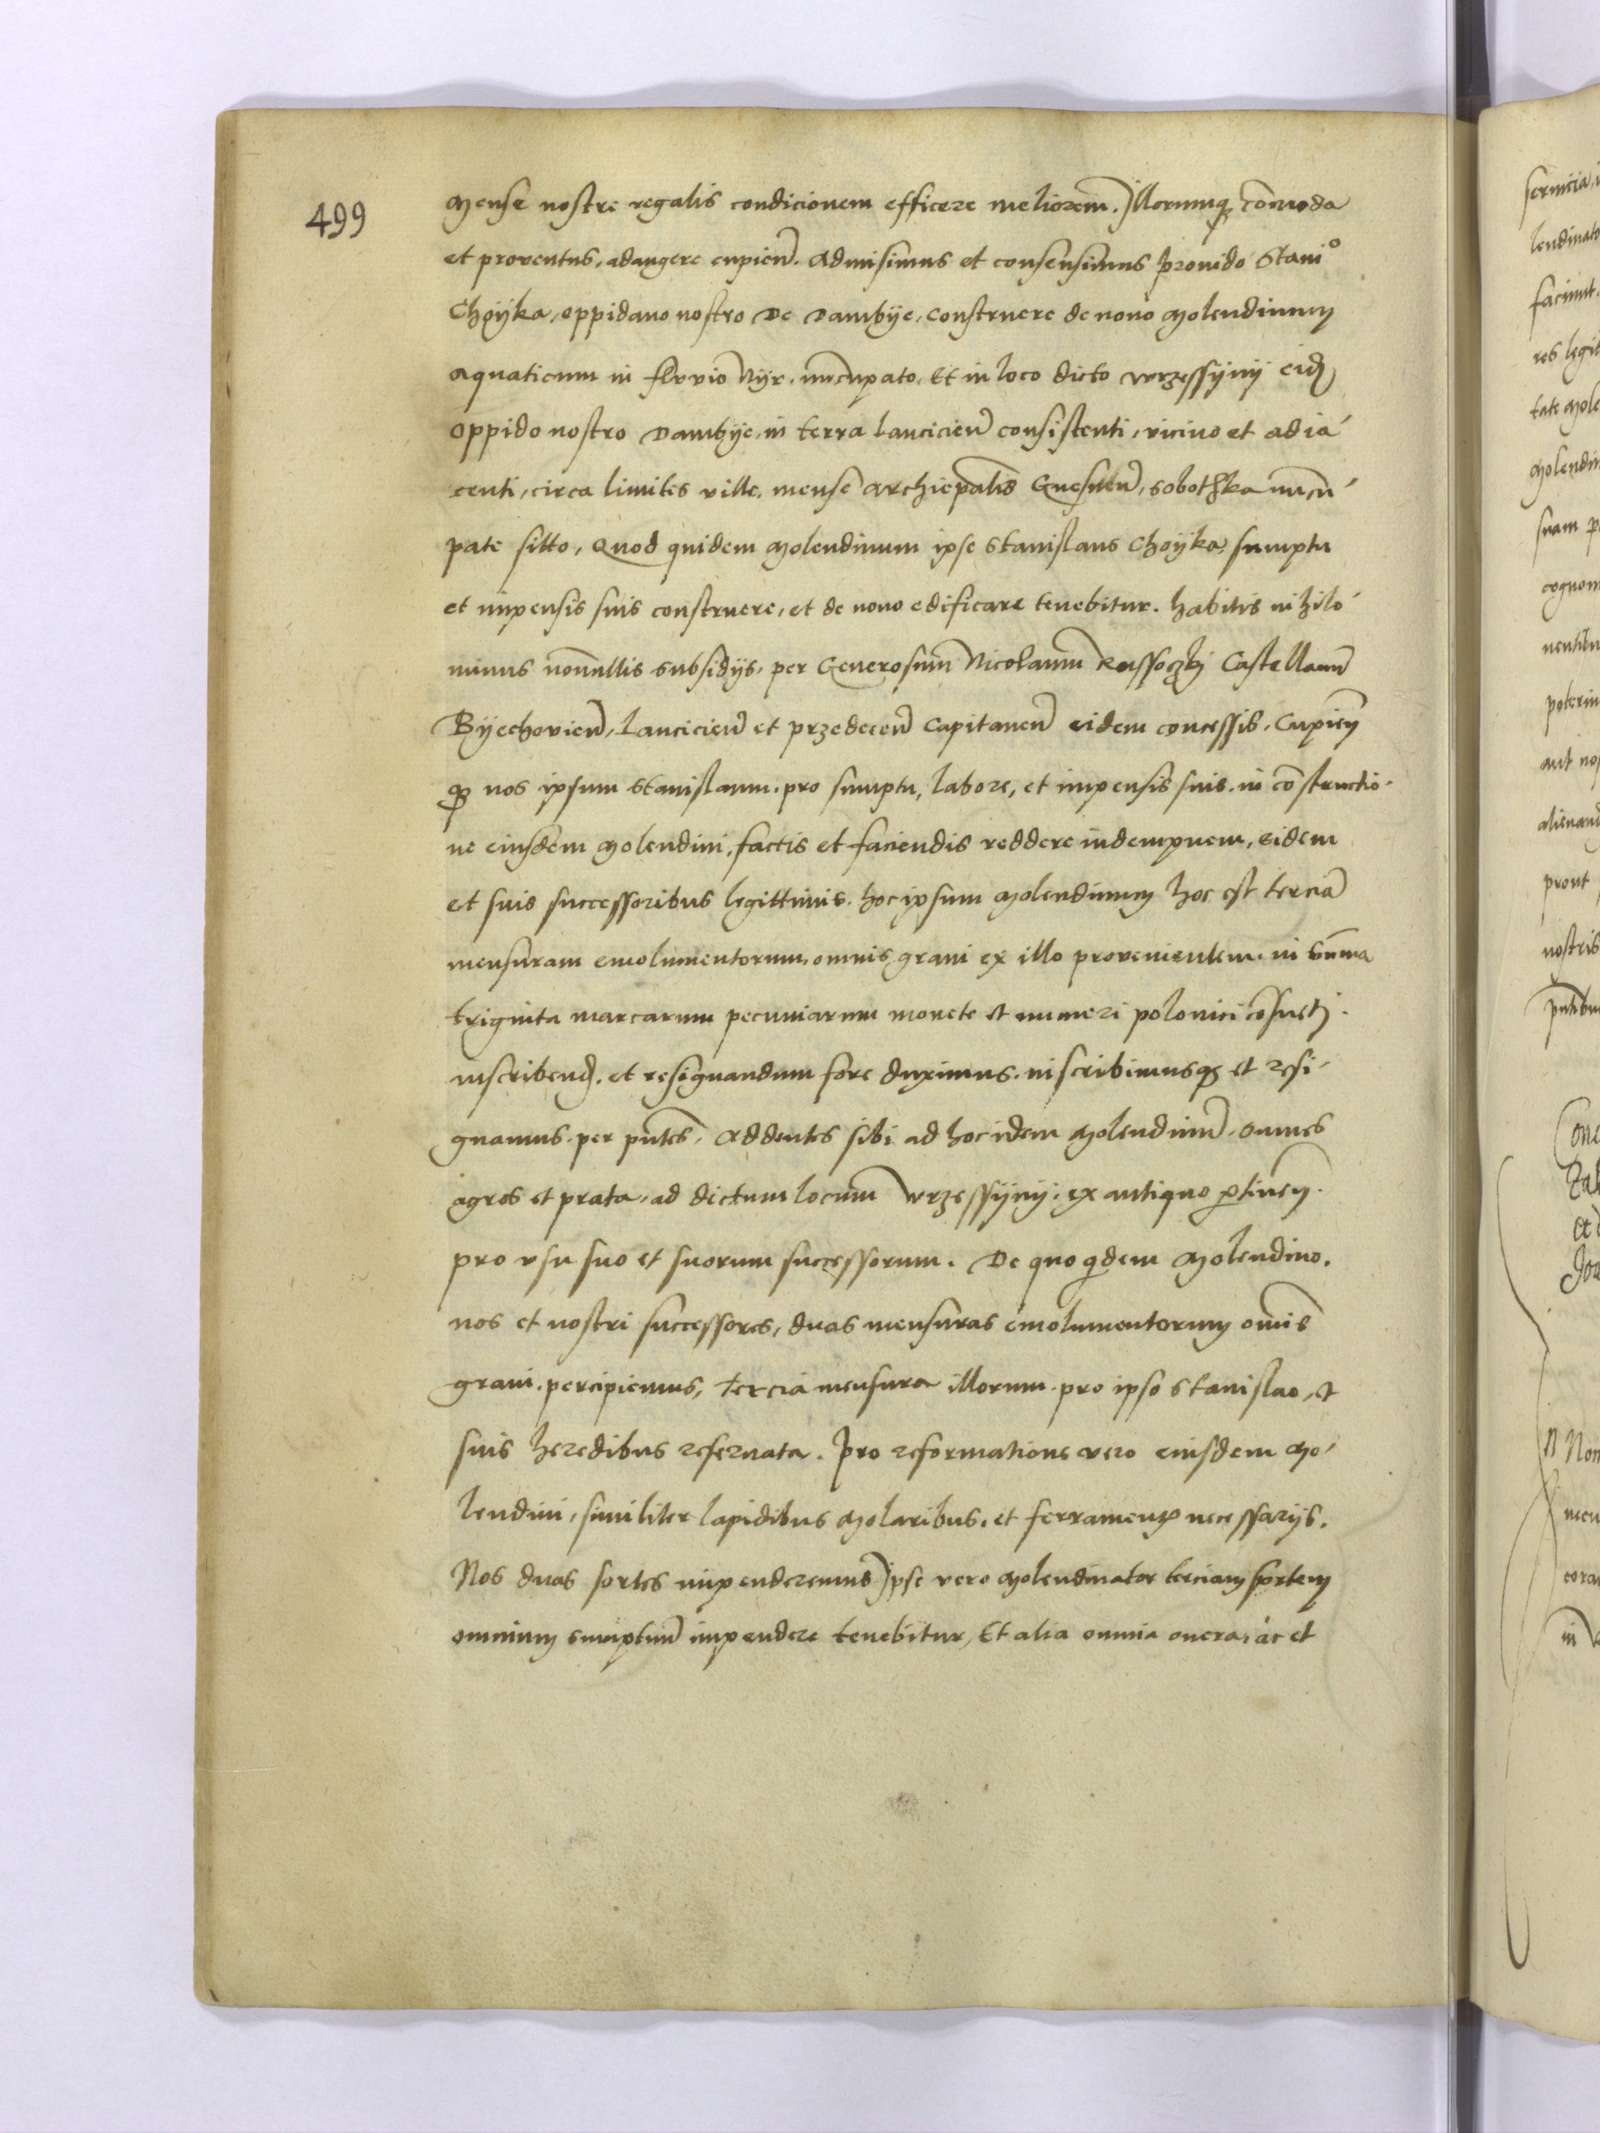 499
Mense nostre regalis condicionem efficere meliorem̄. Illorumqꝫ com̄oda
et proventus, adaugere cupien̄. Admisimus et consensimus provido Staniº
Choyka, oppidano nostro De Dambye, construere de novo Molendinum
aquaticum in fluvio Nyr. nūcupato. Et in loco dicto wrzessyny eidē
oppido nostro Dambye, in terra Lancicien̄ consistenti, vicino et adia-
centi, circa limites ville, mense Archiepālis Gnesnen̄, Sobothka nūcu-
pate sitto, Quod quidem Molendinum ipse Stanislaus Choyka, sumptu
et impensis suis construere, et de novo edificare tenebitur. habitis nihilo-
minus nōnullis subsidijs, per Generosum̄ Nicolaum̄ Russoczki Castellanū
Byechovien̄, Lancicien̄ et przedecen̄ Capitaneū eidem concessis, Cupien̄
qꝫ nos ipsum Stanislaum. pro sumptu, labore, et impensis suis. in cōstructio-
ne eiusdem Molendini, factis et faciendis reddere indempnem, eidem
et suis successoribus legittimis. hoc ipsum Molendinum hoc est terciā
mensuram emolumentorum, omnis grani ex illo provenientem. in sum̄a
triginta marcarum pecuniarum monete et numeri polonici cōsueti.
inscribend̄. et resignandum fore duximus. inscribimusqꝫ et resi-
gnamus. per pn̄tes. Addentes sibi ad hoc idem Molendinū. omnes
agros et prata, ad dictum locum̄ wrzessyny. ex antiquo ꝑtinen̄.
pro usu suo et suorum successorum. De quo qͥdem Molendino.
nos et nostri successores, duas mensuras emolumentorum om̄is
grani. percipiemus, tercia mensura illorum. pro ipso Stanislao, et
suis heredibus reservata. Pro reformatione vero eiusdem Mo-
lendini, similiter lapidibus Molaribus, et ferramentꝭ necessarijs.
Nos duas sortes impenderemus Ipse vero Molendinator terciam sortem
omnium sumptuū impendere tenebitur, Et alia omnia onera, ac et